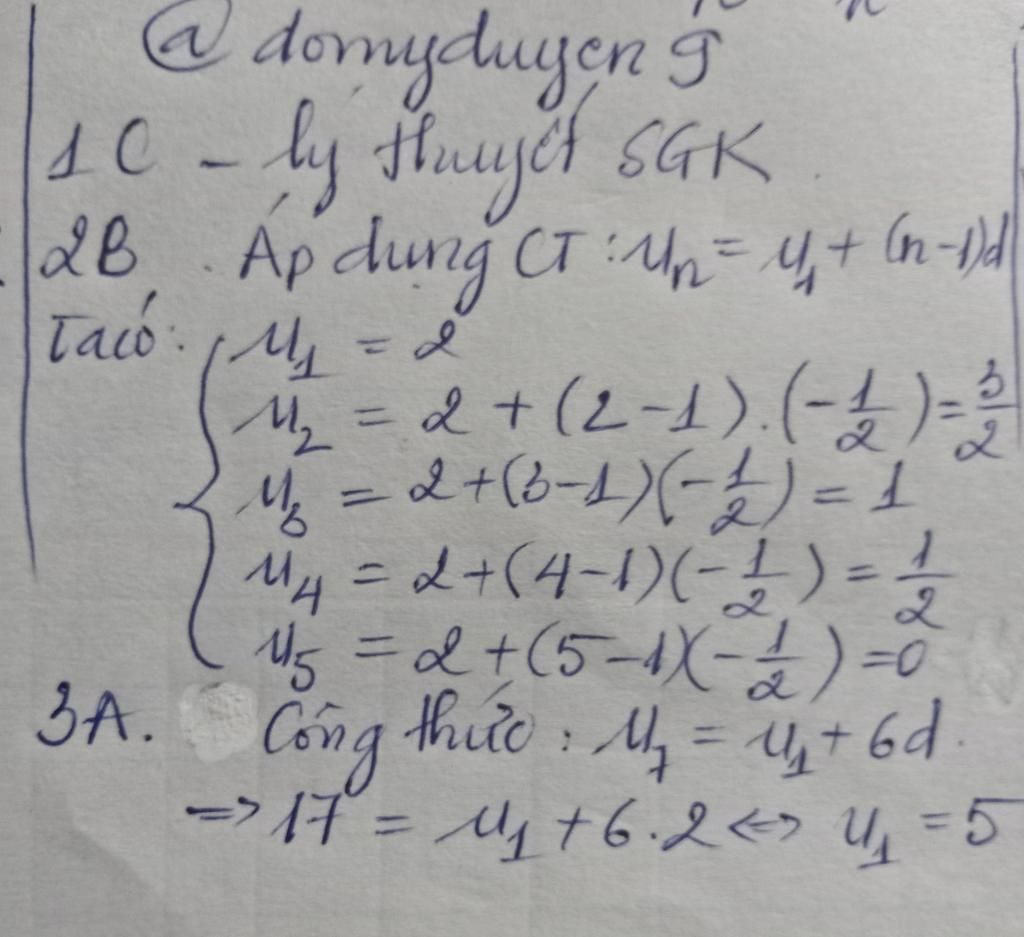 @domyduyen9
1C - lý thuyết SGK
2B. Áp dụng CT: uₙ = u₁ + (n-1)d
Ta có: { u₁ = 2
u₂ = 2 + (2-1).(-1/2) = 3/2
u₃ = 2+(3-1)(-1/2) = 1
u₄ = 2+(4-1)(-1/2) = 1/2
u₅ = 2+(5-1)(-1/2) = 0
3A. Công thức: u₇ = u₁ + 6d.
=> 17 = u₁ + 6.2 <=> u₁ = 5